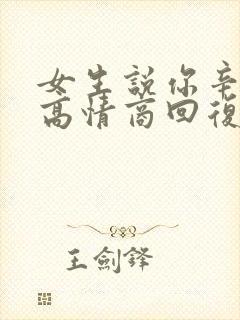 女生說你辛
高情商回復
王劍鋒